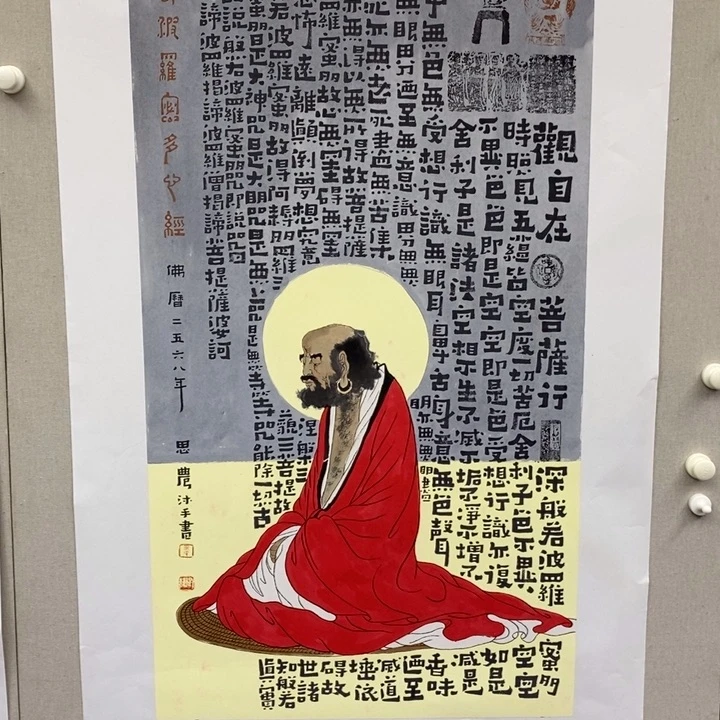 觀自在菩薩行深般若波羅蜜多
時照見五蘊皆空度一切苦厄舍利子色不異空空
不異色色即是空空即是色受想行識亦復如是
舍利子是諸法空相不生不滅不垢不淨不增不減是
無色無受想行識無眼耳鼻舌身意無色聲香味
無眼界迺至無意識界無無明亦無無明盡迺至
亦無老死盡無苦集滅道
無得以無所得故菩提薩埵依
羅蜜多故心無罣礙無罣礙故
恐怖遠離顛倒夢想究竟涅槃三世諸
若波羅蜜多故得阿耨多羅三藐三菩提故知般若
蜜多是大神咒是大明咒是無上咒是無等等咒能除一切苦真實
說般若波羅蜜多咒即說咒曰
諦波羅揭諦波羅僧揭諦菩提薩婆訶
波羅蜜多心經
佛曆二五六八年
思農沐手書